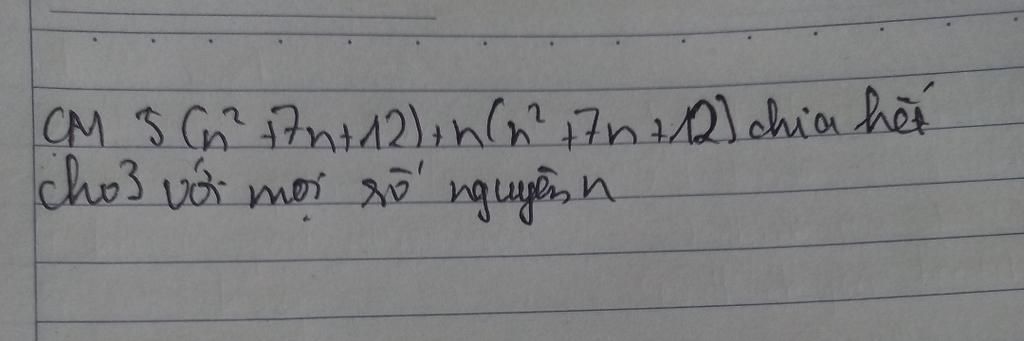 CM 5(n²+7n+12)+n(n²+7n+12) chia hết
cho3 với mọi số nguyên n